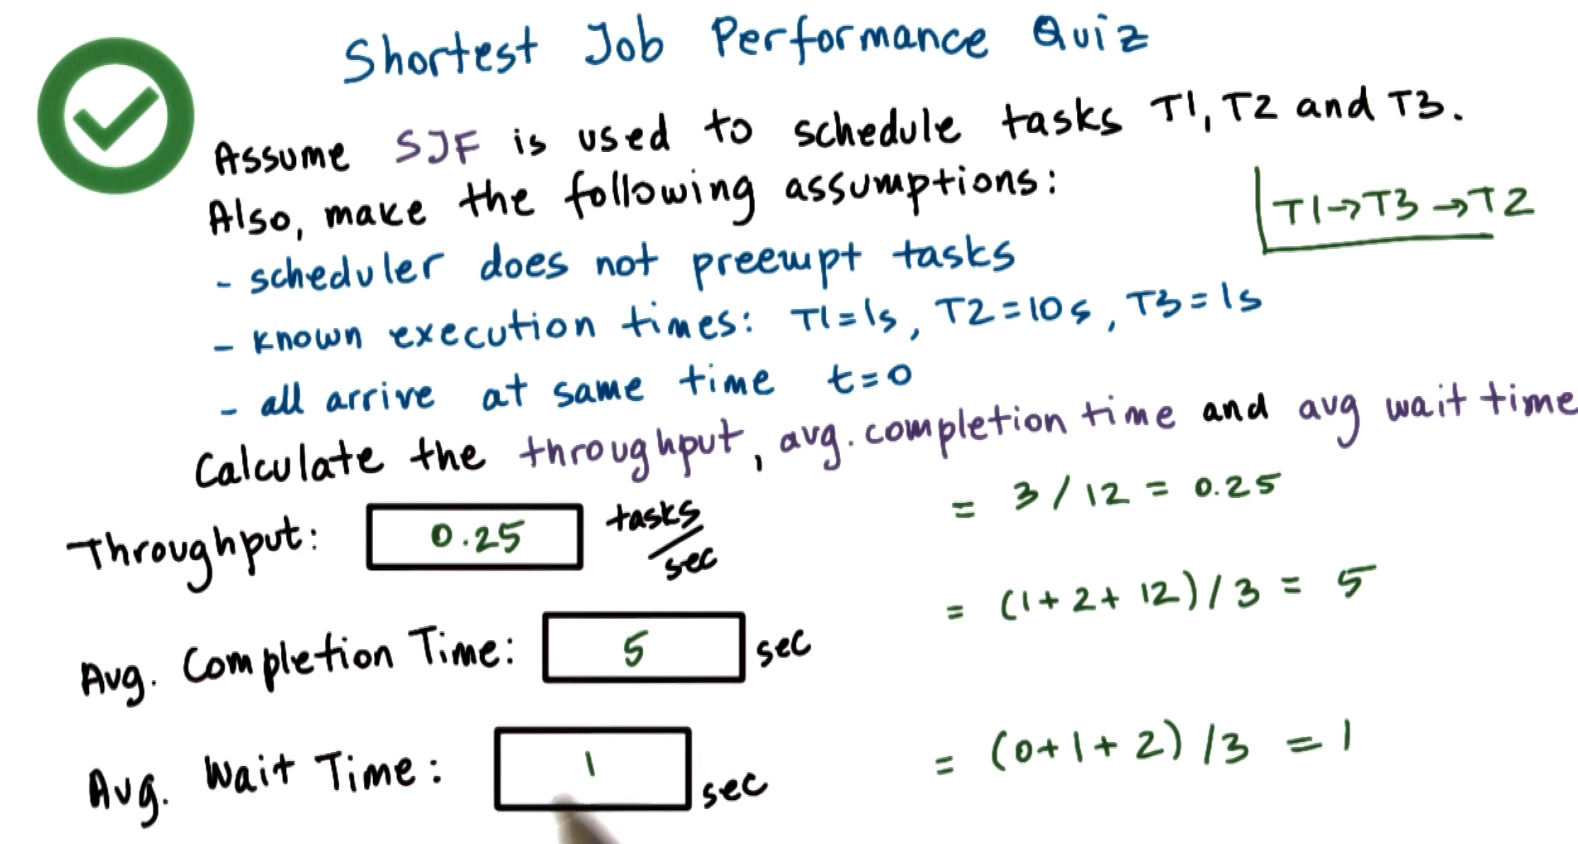 Shortest Job Performance Quiz
Assume SJF is used to schedule tasks T1, T2 and T3.
Also, make the following assumptions:
T1→T3→T2
- scheduler does not preempt tasks
- known execution times: T1=1s, T2=10s, T3=1s
- all arrive at same time t=0
Calculate the throughput, avg. completion time and avg wait time
Throughput: 0.25 tasks/sec
= 3/12 = 0.25
Avg. Completion Time: 5 sec
= (1+2+12)/3 = 5
Avg. Wait Time: 1 sec
= (0+1+2)/3 = 1